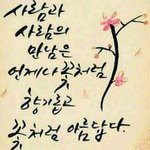 사람과
사람의
만남은
언제나 꽃처럼
향기롭고
꽃처럼 아름답다.